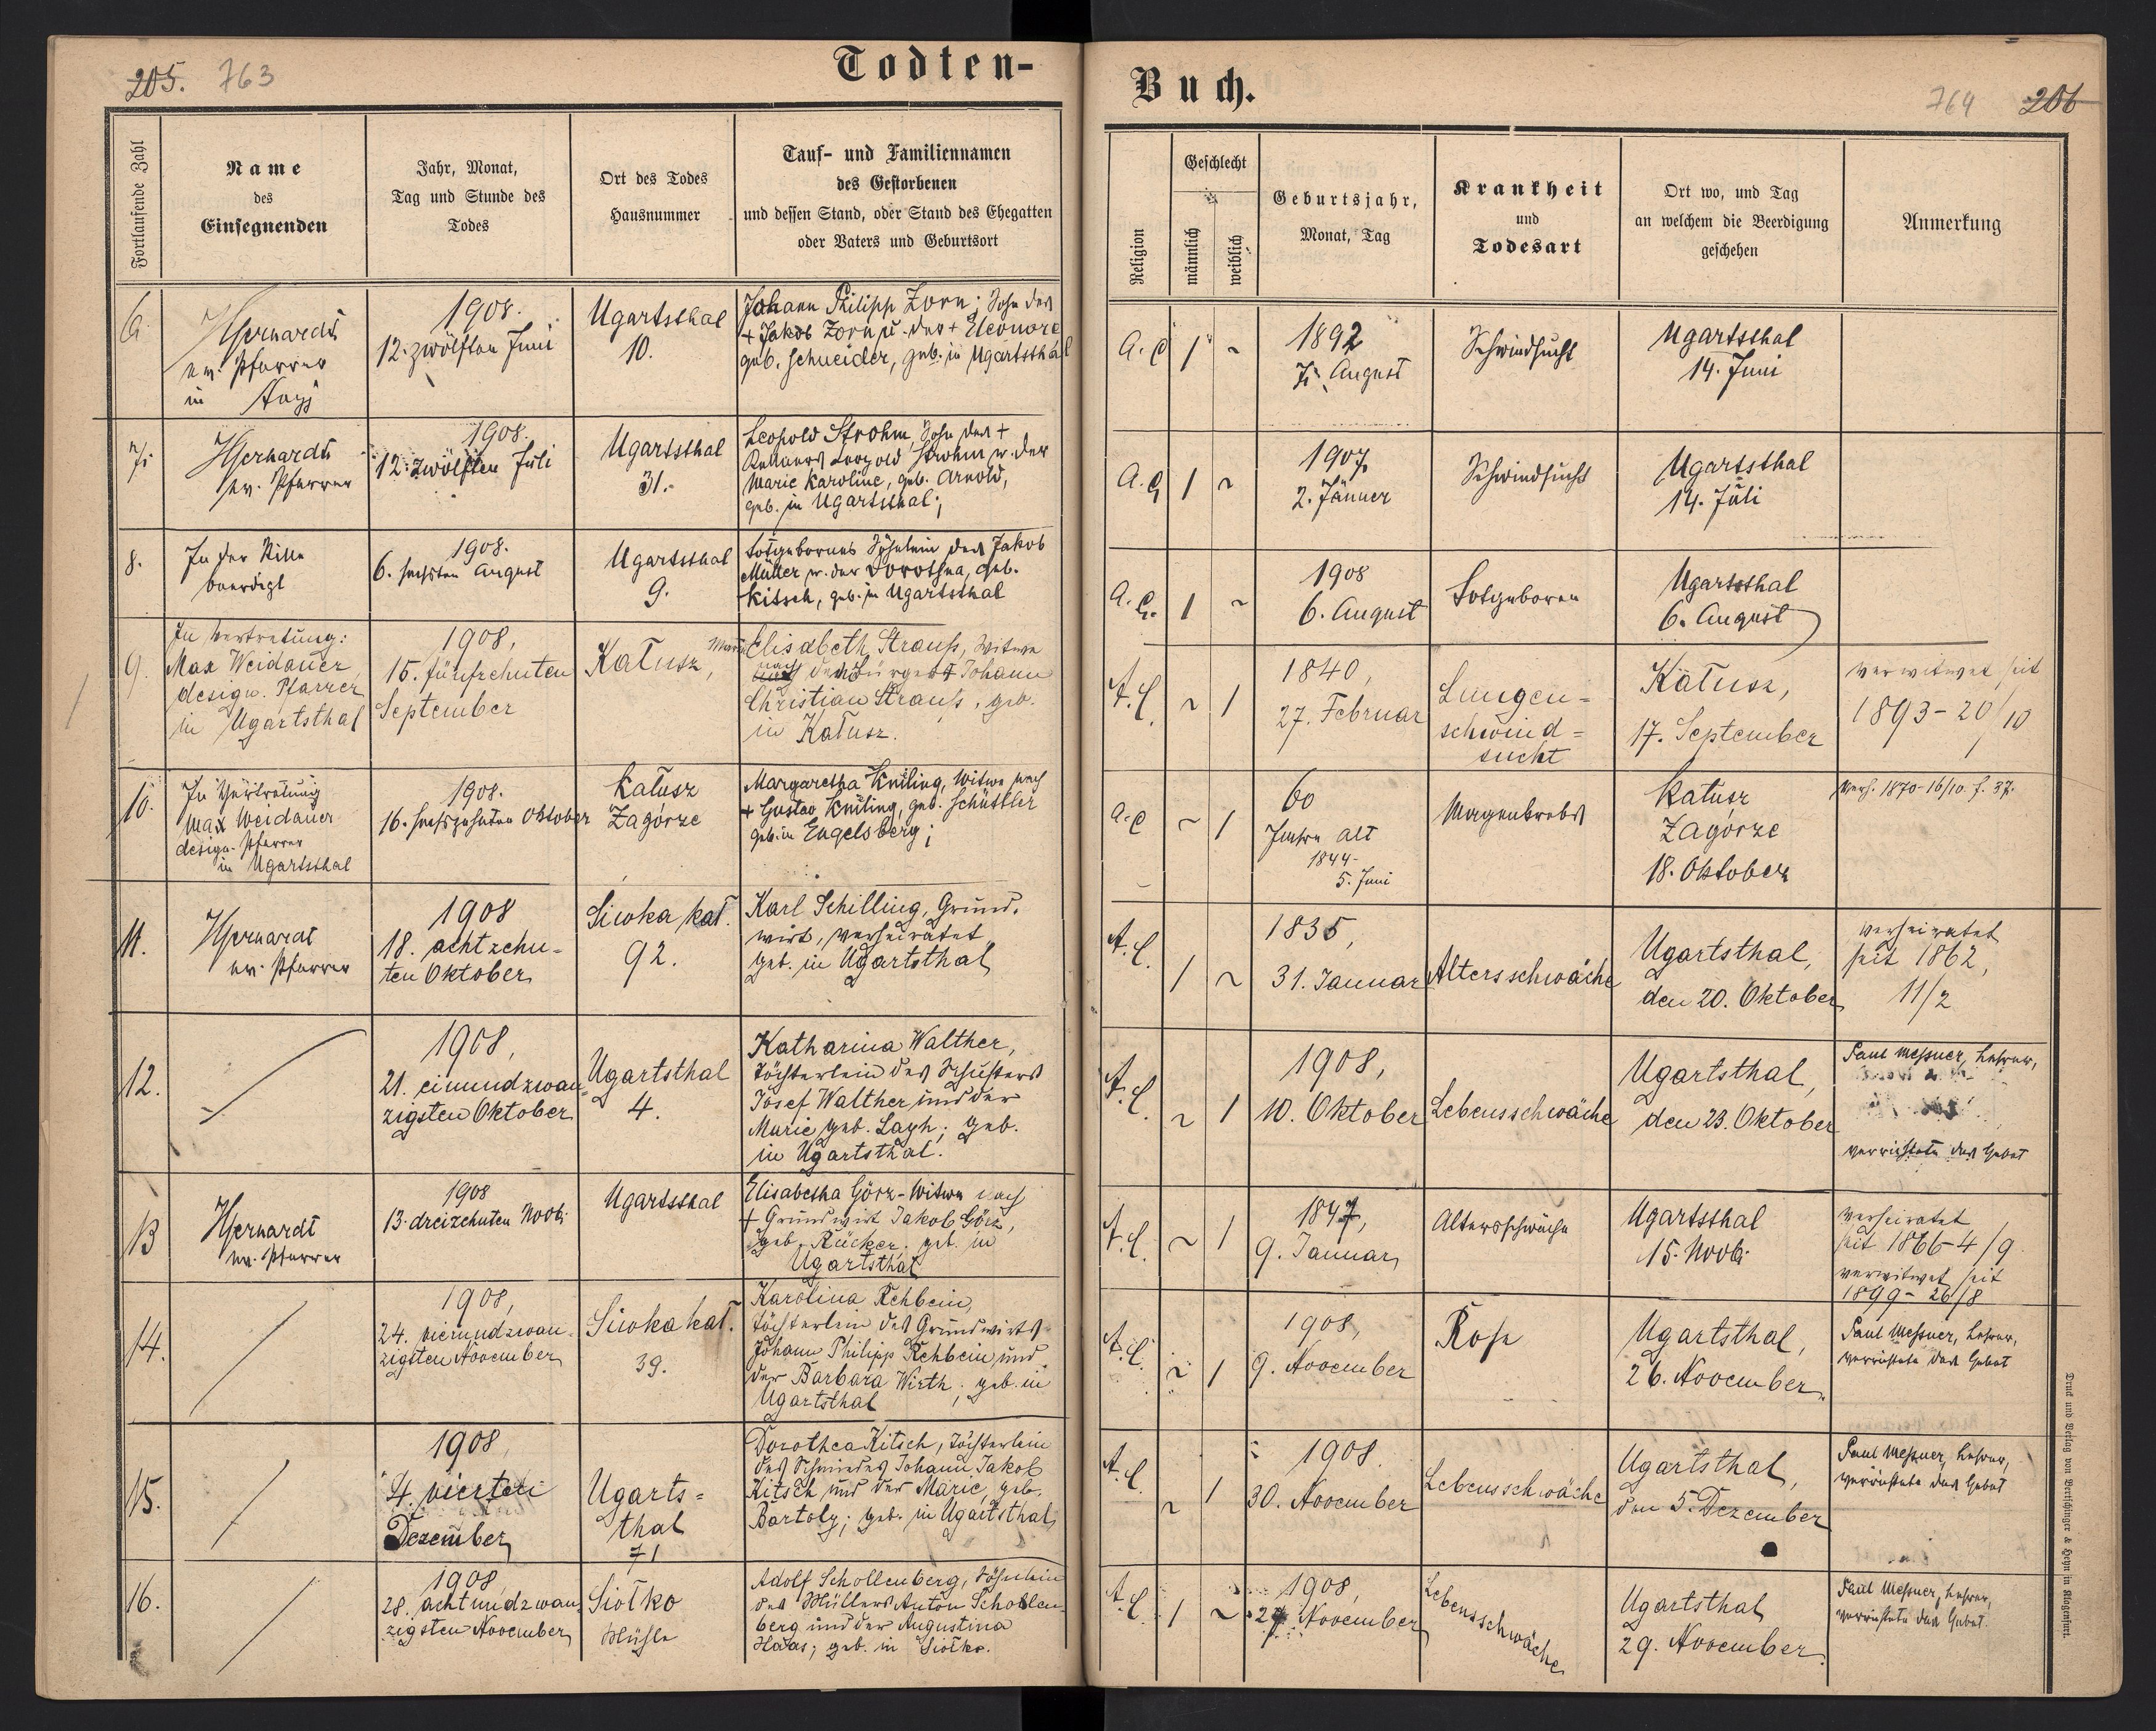 205. 763
Todten-
Fortlaufende Zahl
Name
des
Einsegnenden
Jahr, Monat,
Tag und Stunde des
Todes
Ort des Todes
Hausnummer
Tauf- und Familiennamen
des Gestorbenen
und dessen Stand, oder Stand des Ehegatten
oder Vaters und Geburtsort
6.
ev. Pfarrer
in
1908.
12. zwölften Juni
Ugartsthal
10.
Johann Philipp Zorn; Sohn des
+ Jakob Zorn u. der + Eleonore
geb. Schneider, geb. in Ugartsthal
7.
ev. Pfarrer
1908.
12. zwölften Juli
Ugartsthal
31.
Leopold Strohm, Sohn des +
Leopold Strohm u. der
Marie Karoline, geb. Arnold,
geb. in Ugartsthal;
8.
In der Stille
beerdigt
1908.
6. sechsten August
Ugartsthal
9.
Totgebornes Söhnlein des Jakob
Müller u. der Dorothea, geb.
Kitsch, geb. in Ugartsthal
9.
In Vertretung:
Max Weidauer
design. Pfarrer
in Ugartsthal
1908,
15. fünfzehnten
September
Kałusz,
Elisabeth Strauß, Witwe
nach dem Bürger + Johann
Christian Strauß, geb.
in Kałusz.
10.
In Vertretung
Max Weidauer
design. Pfarrer
in Ugartsthal
1908.
16. sechszehnten Oktober
Kałusz
Zagórze
Margaretha Knüling, Witwe nach
+ Gustav Knüling, geb. Schüssler
geb. in Engelsberg;
11.
ev. Pfarrer
1908
18. achtzehn-
ten Oktober
Siwka kał.
92.
Karl Schilling, Grund-
wirt, verheiratet,
geb. in Ugartsthal
12.
1908,
21. einundzwan-
zigsten Oktober
Ugartsthal
4.
Katharina Walther,
Töchterlein des Schusters
Josef Walther und der
Marie geb. Layh; geb.
in Ugartsthal.
13
ev. Pfarrer
1908
13. dreizehnten Novb.
Ugartsthal
Elisabetha Görz - Witwe nach
+ Grundwirt Jakob Görz,
geb. Rücker; geb. in
Ugartsthal
14.
1908,
24. vierundzwan-
zigsten November
Siwka kał.
39.
Karolina Rehbein,
Töchterlein des Grundwirts
Johann Philipp Rehbein und
der Barbara Wirth; geb. in
Ugartsthal
15.
1908
4. vierten
Dezember
Ugarts-
thal
71
Dorothea Kitsch, Töchterlein
des Schmiedes Johann Jakob
Kitsch und der Marie, geb.
Bartoly; geb. in Ugartsthal
16.
1908
28. achtundzwan-
zigsten November
Siołko
Mühle
Adolf Schollenberg, Söhnlein
des Müllers Anton Schollen-
berg und der Augustina
Haas; geb. in Siołko.
Buch.
764 206
Religion
Geschlecht
männlich
weiblich
Geburtsjahr,
Monat, Tag
Krankheit
und
Todesart
Ort wo, und Tag
an welchem die Beerdigung
geschehen
Anmerkung
A. C 1 ~
1892
7. August
Schwindsucht
Ugartsthal
14. Juni
A. C 1 ~
1907
2. Jänner
Schwindsucht
Ugartsthal
14. Juli
A. C. 1 ~
1908
6. August
Totgeboren
Ugartsthal
6. August
A. C. ~ 1
1840,
27. Februar
Lungen=
schwind=
sucht
Kałusz,
17. September
verwitwet seit
1893 - 20/10
A. C ~ 1
60
Jahre alt
1844-
5. Juni
Magenkrebs
Kałusz
Zagórze
18. Oktober
verh. 1870 - 16/10. f. 37.
A. C. 1 ~
1835,
31. Januar
Altersschwäche
Ugartsthal,
den 20. Oktober
verheiratet
seit 1862,
11/2
A. C. ~ 1
1908,
10. Oktober
Lebensschwäche
Ugartsthal,
den 23. Oktober
Paul Meßner, Lehrer,
verrichtete das Gebet
A. C. ~ 1
1847,
9. Januar
Altersschwäche
Ugartsthal
15. Novb.
verheiratet
seit 1866 - 4/9
verwitwet seit
1899 - 26/8
A. C. ~ 1
1908,
9. November
Rose
Ugartsthal,
26. November
Paul Meßner, Lehrer,
verrichtete das Gebet
A. C. ~ 1
1908.
30. November
Lebensschwäche
Ugartsthal,
den 5. Dezember
Paul Meßner, Lehrer,
verrichtete das Gebet
A. C. 1 ~
1908,
November
Lebensschwäche
Ugartsthal
29. November.
Paul Meßner, Lehrer,
verrichtete das Gebet.
Druck und Verlag von Bertschinger & Heyn in Klagenfurt.